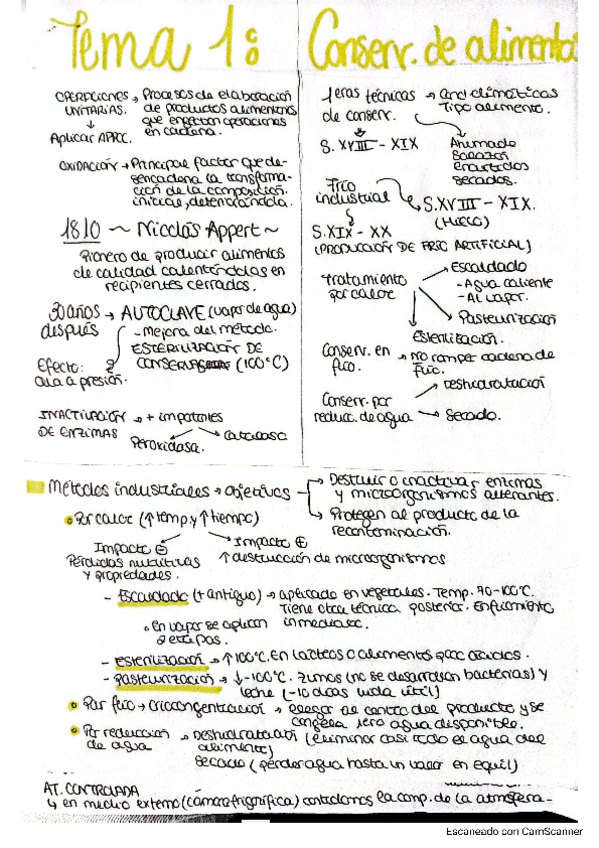 Tema 1:
Conserv. de alimentos
OPERACIONES UNITARIAS. → Procesos de elaboración
de productos alimentarios
que ejecutan operaciones
en cadena.
↓
Aplicar APPCC.
OXIDACIÓN → Principal factor que de-
sencadena la transforma-
ción de la composición
inicial, deteriorándola.
1810 ~ Nicolás Appert ~
Pionero de producir alimentos
de calidad calentándolas en
recipientes cerrados.
30 años después → AUTOCLAVE (vapor de agua)
- Mejora del método.
ESTERILIZACIÓN DE
CONSERVAS (100°C)
Efecto:
olla a presión.
INACTIVACIÓN DE ENZIMAS → + importantes
Peroxidasa. Catalasa
1eras técnicas de conserv. → cond climáticas
Tipo alimento.
S. XVIII - XIX
Ahumado
Salazón
encurtidos
secados.
Frío industrial
S. XVIII - XIX.
(HIELO)
S. XIX - XX
(PRODUCCIÓN DE FRÍO ARTIFICIAL)
Tratamiento por calor
Escaldado
- Agua caliente
- Al vapor.
Pasteurización
Esterilización.
Conserv. en frío. → No romper cadena de
frío.
Conserv. por reducc. de agua
Deshidratación
Secado.
Métodos industriales → objetivos
→ Destruir o inactivar enzimas
y microorganismos alterantes.
→ Protegen al producto de la
recontaminación.
• Por calor (↑ temp. y ↑ tiempo)
Impacto ⊖
Pérdidas nutritivas
y propiedades.
Impacto ⊕
↑ destrucción de microorganismos
- Escaldado (+ antiguo) → aplicado en vegetales. Temp. 70-100°C.
Tiene otra técnica posterior. Enfriamiento
inmediato.
• en vapor se aplican
2 etapas.
- esterilización → ↑ 100°C. En lácteos o alementos poco ácidos.
- Pasteurización → ↓ -100°C. Zumos (no se desarrollan bacterias) y
leche (-10 días vida útil)
• Por frío → crioconcentración → llegar al centro del producto y se
congela 1ero agua disponible.
• Por reducción de agua → Deshidratación (eliminar casi todo el agua del
alimento)
secado (perder agua hasta un valor en equil)
AT. CONTROLADA
↳ en medio externo (cámara frigorífica) controlamos la comp. de la atmósfera-
Escaneado con CamScanner